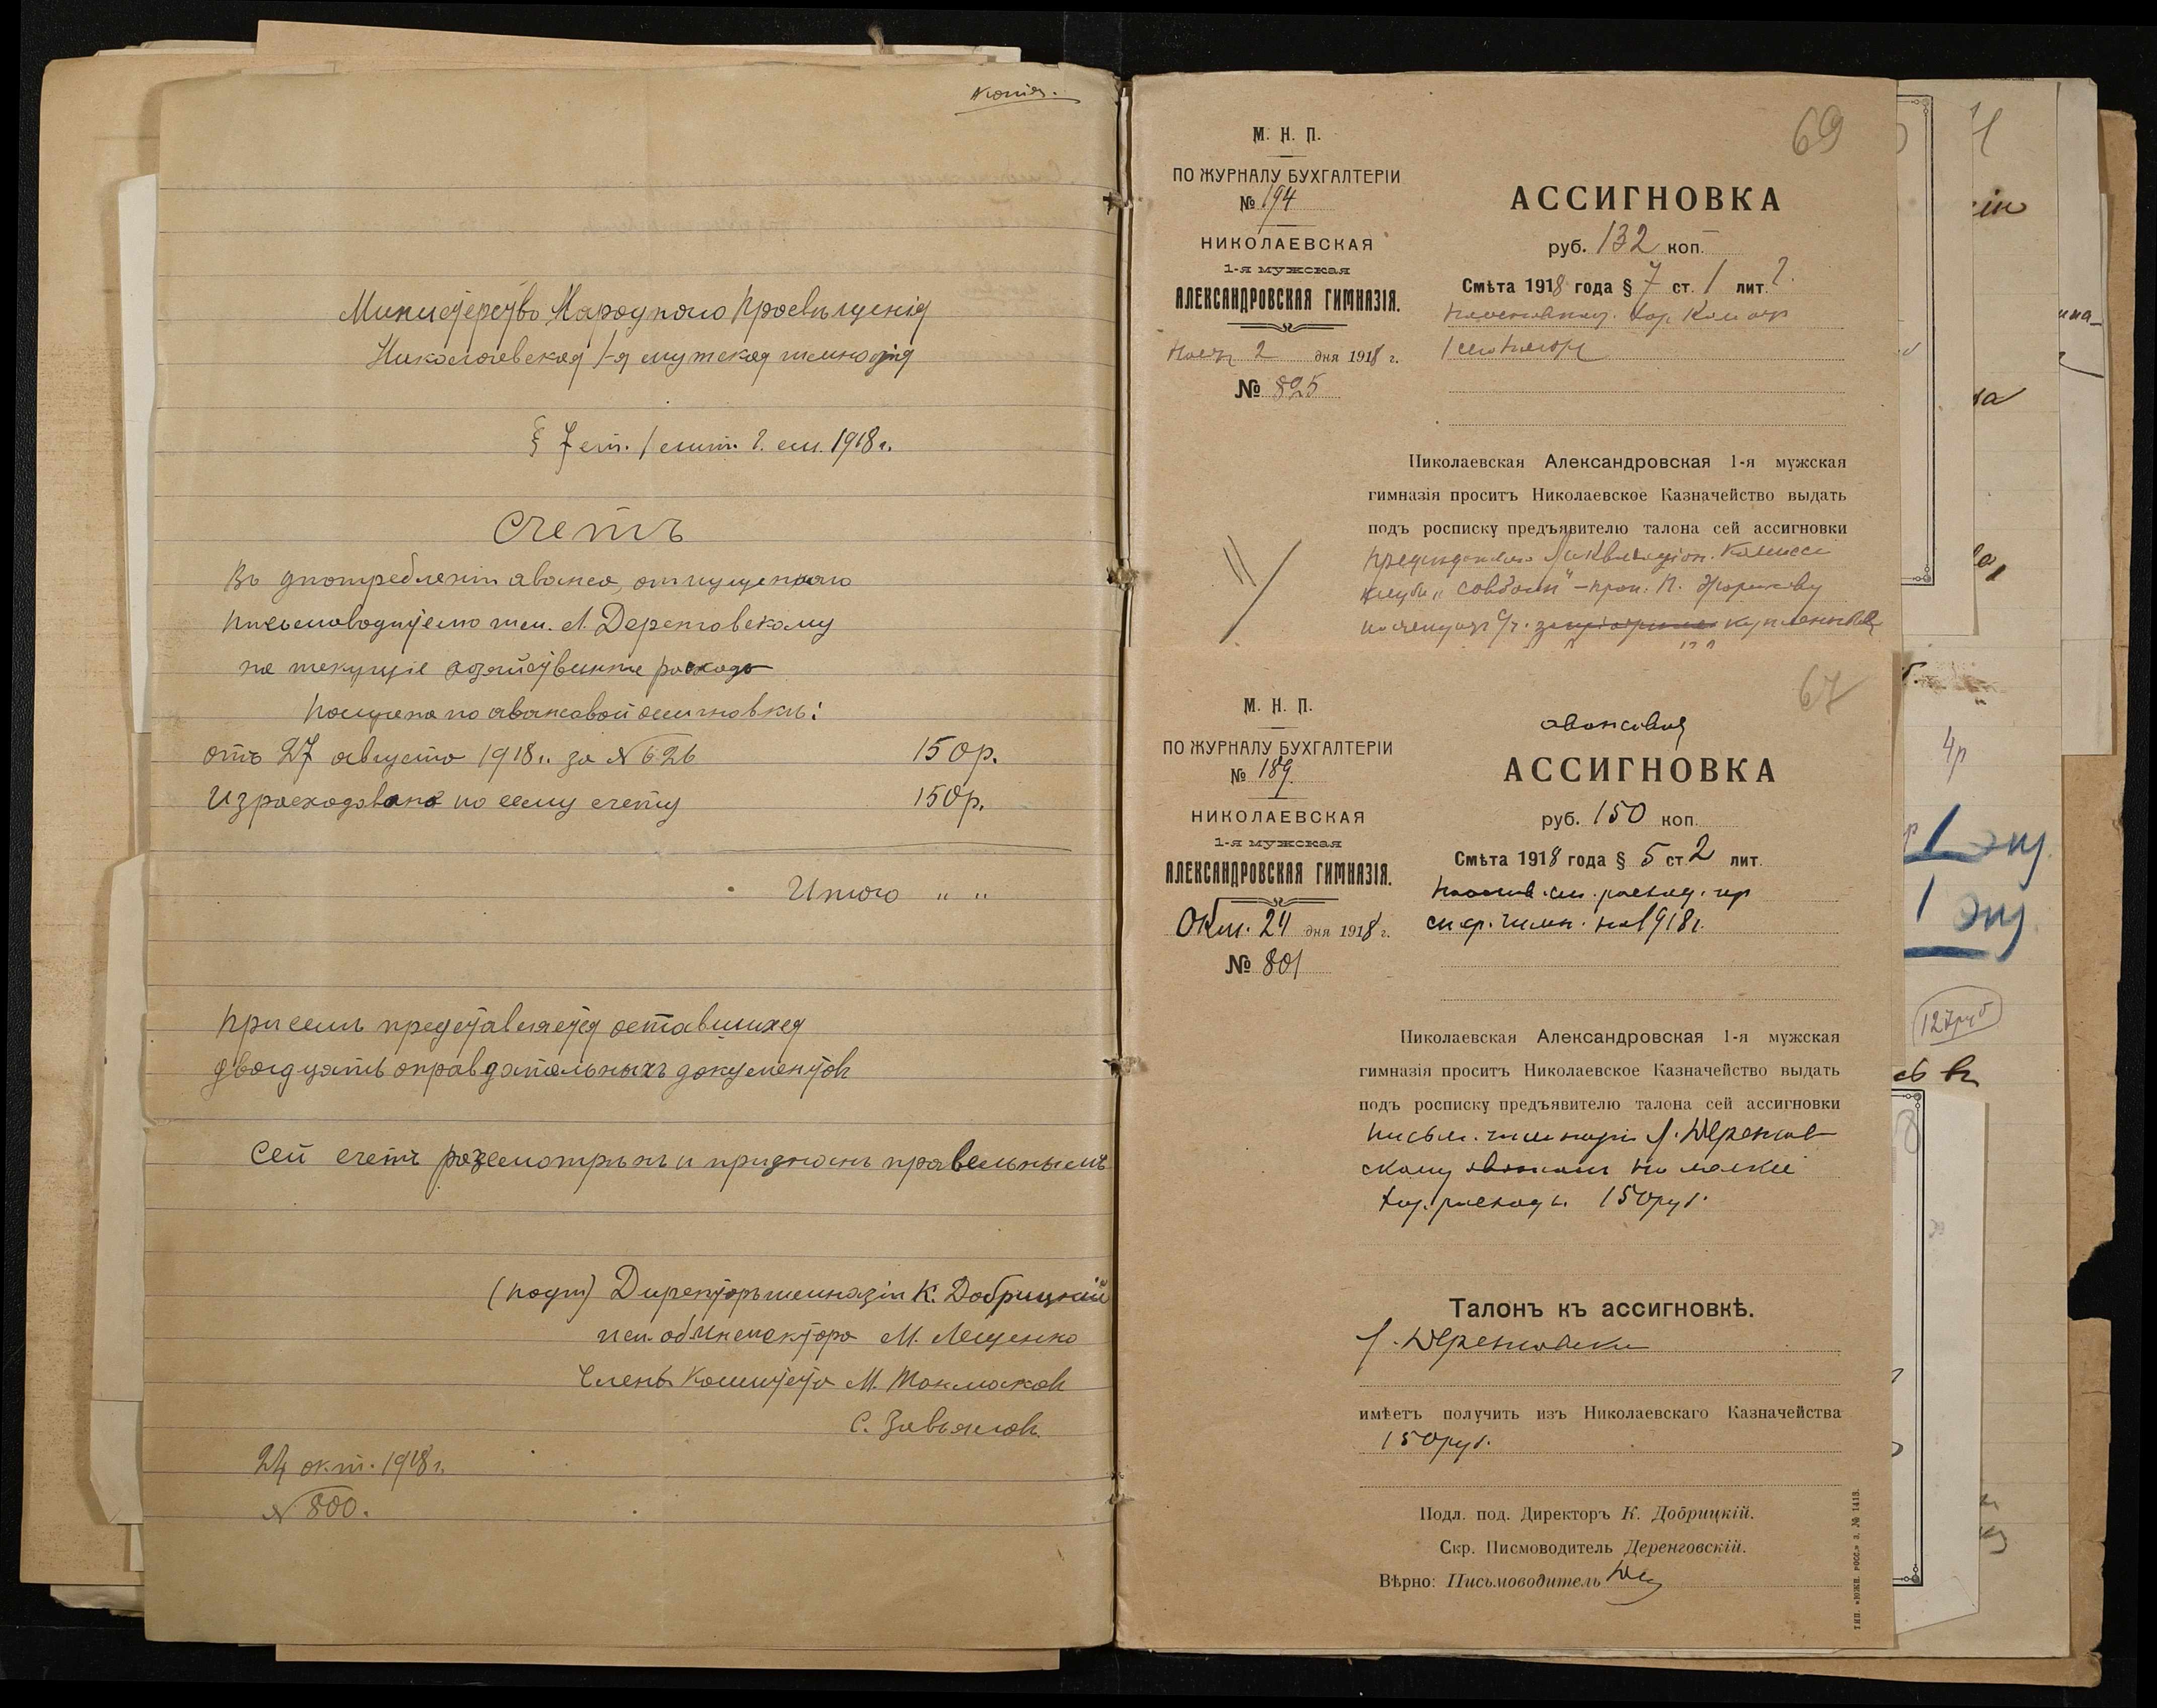 Копія.
Министерство Народного Просвѣщенія
Николаевская 1-я мужская гимназія
§ 7 ст. 1 лит. 2. см. 1918 г.
Счетъ
Въ употребленіи аванса, отпущеннаго
письмоводителю гимн. Л. Деренговскому
на текущіе хозяйственные расходы
Получено по авансовой ассигновкѣ:
отъ 27 августа 1918 г. за № 626 150 р.
Израсходовано по сему счету 150 р.
Итого " "
При семъ представляется оставшихся
двадцать оправдательныхъ документовъ
Сей счетъ разсмотрѣнъ и признанъ правельнымъ
(подп) Директоръ гимназіи К. Добрицкій
исп. об. Инспектора М. Лещенко
Члены Комитета М. Токмаковъ
С. Завьяловъ
24 окт. 1918 г.
№ 800.
69
М. Н. П.
ПО ЖУРНАЛУ БУХГАЛТЕРІИ
№ 194
НИКОЛАЕВСКАЯ
1-я мужская
АЛЕКСАНДРОВСКАЯ ГИМНАЗІЯ.
2 дня 1918 г.
№ 825
АССИГНОВКА
руб. 132 коп.
Смѣта 1918 года § 7 ст. 1 лит. 2.
Николаевская Александровская 1-я мужская
гимназія проситъ Николаевское Казначейство выдать
подъ росписку предъявителю талона сей ассигновки
Ликвидаціон. Комисс
клуба
67
М. Н. П.
ПО ЖУРНАЛУ БУХГАЛТЕРІИ
№ 189
НИКОЛАЕВСКАЯ
1-я мужская
АЛЕКСАНДРОВСКАЯ ГИМНАЗІЯ.
Окт. 24 дня 1918 г.
№ 801
авансовая
АССИГНОВКА
руб. 150 коп.
Смѣта 1918 года § 5 ст 2 лит.
расход.
гимн. на 1918 г.
Николаевская Александровская 1-я мужская
гимназія проситъ Николаевское Казначейство выдать
подъ росписку предъявителю талона сей ассигновки
письм. гимназіи Л. Деренгов
скому авансом на мелкіе
хоз. расходы 150 руб.
Талонъ къ ассигновкѣ.
Л. Деренговскій
имѣетъ получить изъ Николаевскаго Казначейства
150 руб.
Подл. под. Директоръ К. Добрицкій.
Скр. Писмоводитель Деренговскій.
Вѣрно: Письмоводитель
ТИП. «ЮЖН. РОСС.» З. № 1413.
4р
127руб